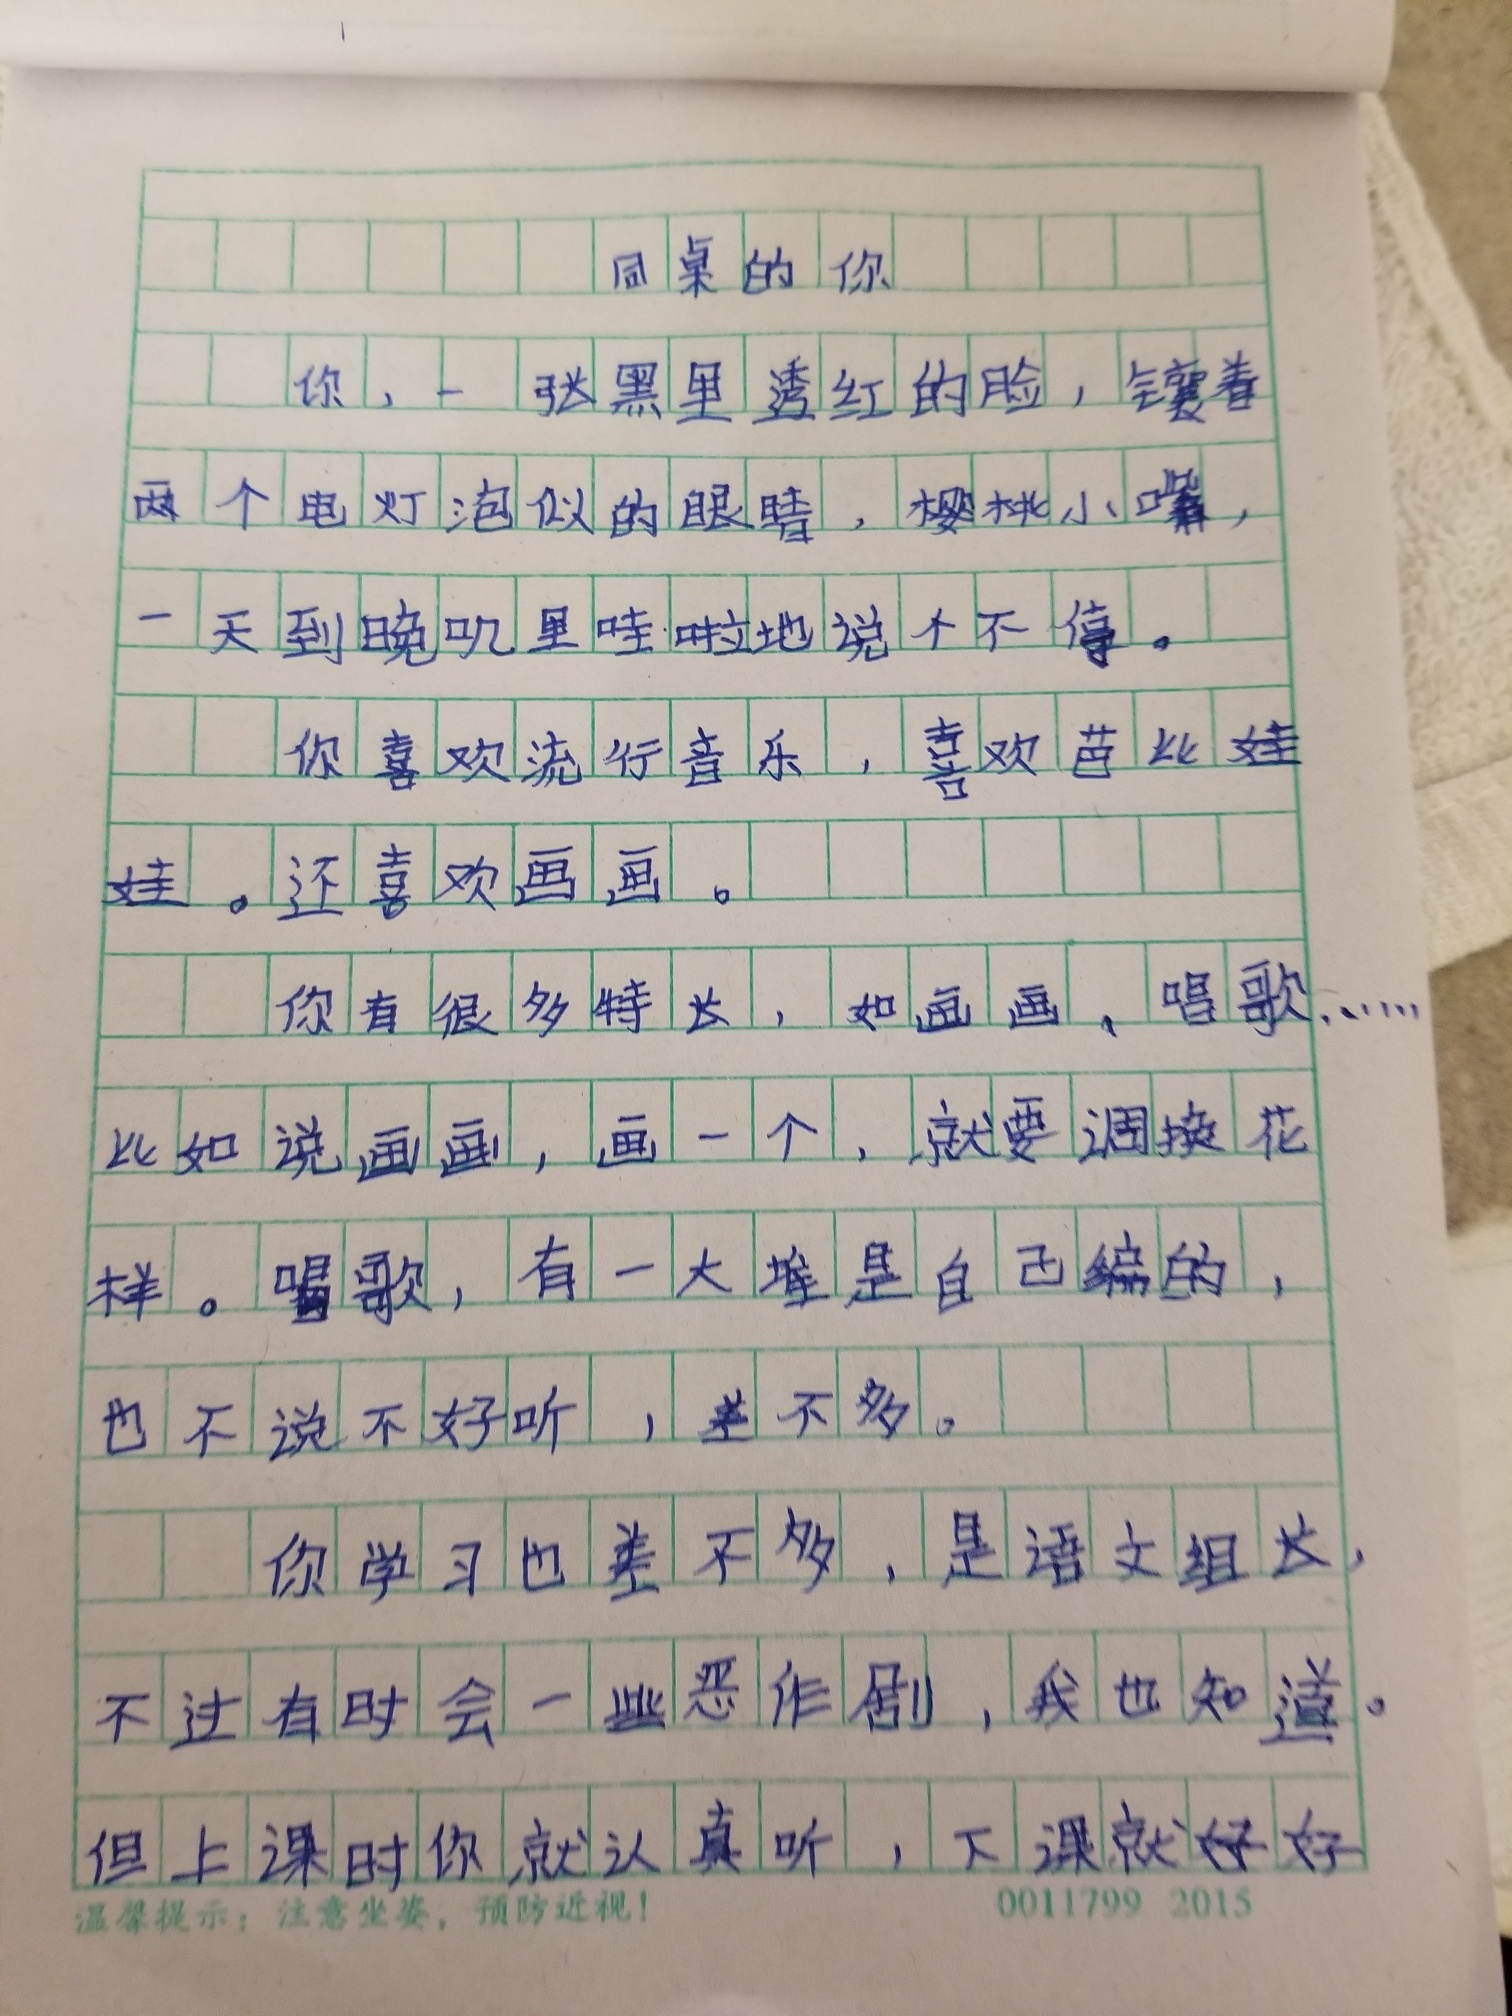 同桌的你
你，一张黑里透红的脸，镶着
两个电灯泡似的眼睛，樱桃小嘴，
一天到晚叽里哇啦地说个不停。
你喜欢流行音乐，喜欢芭比娃
娃。还喜欢画画。
你有很多特长，如画画、唱歌……
比如说画画，画一个，就要调换花
样。唱歌，有一大堆是自己编的，
也不说不好听，差不多。
你学习也差不多，是语文组长，
不过有时会一些恶作剧，我也知道。
但上课时你就认真听，下课就好好
温馨提示：注意坐姿，预防近视！
0011799 2015